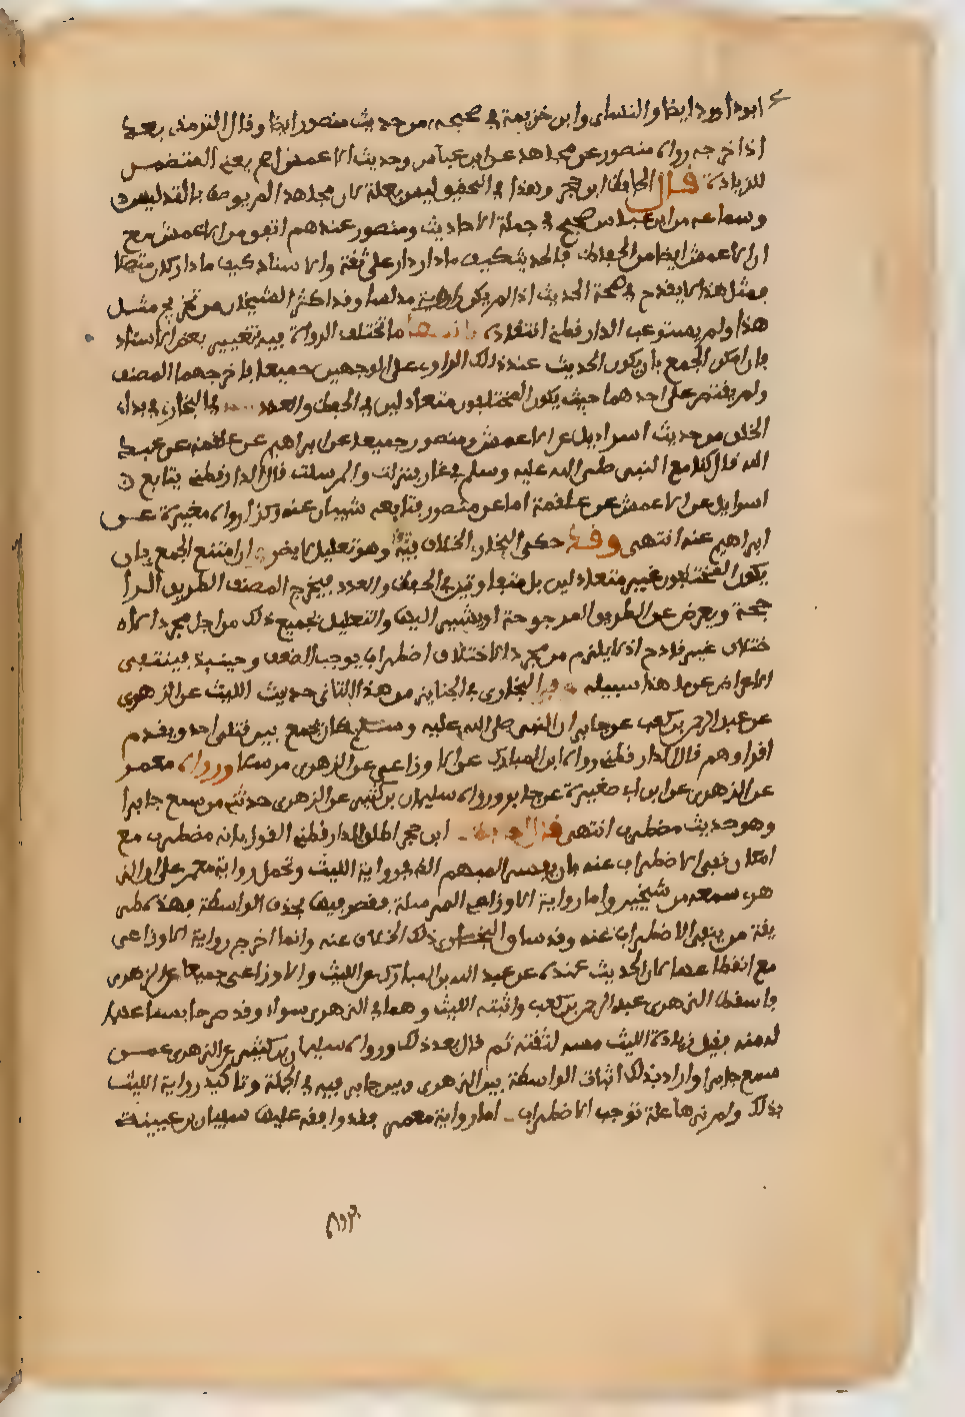 ابوداوود ايضا والنساي وابن خزيمة في صحيحه من حديث منصور ايضا وقال الترمذي بعد
اذ اخرجه رواه منصور عن مجاهد عن ابن عباس وحديث الاعمش اصح يعني المتضمن
للزيادة قال الحافظ ابن حجر وهذا في التحقيق ليس بعلة لان مجاهدا لم يوصف بالتدليس
وسماعه من ابن عباس صحيح في جملة الاحاديث ومنصور عندهم اتقن من الاعمش مع
ان الاعمش ايضا من الحفاظ فالحديث كيف ما دار دار على ثقة والاسناد كيف ما دار كان متصلا
فمثل هذا لا يقدح في صحة الحديث اذا لم يكن راويه مدلسا وقد اكثر الشيخان من تخريج مثل
هذا ولم يستوعب الدارقطني انتقاده ما تختلف الرواة فيه بتغيير بعض الاسناد
فان امكن الجمع بان يكون الحديث عند ذلك الراوي على الوجهين جميعا فاخرجهما المصنف
ولم يقتصر على احدهما حيث يكون المختلفون متعادلين في الحفظ والعدد في البخاري في بدا
الخلق من حديث اسراويل عن الاعمش ومنصور جميعا عن ابراهيم عن علقمة عن عبد
الله قال كنا مع النبي صلى الله عليه وسلم في غار فنزلت والمرسلت قال الدارقطني يتابع
اسراويل عن الاعمش عن علقمة اما عن منصور فتابعه شيبان عنه وكذا رواه مغيرة عن
ابراهيم عنه انتهى وقد حكى البخاري الخلاف فيه وهو تعليل لا يضر وان امتنع الجمع بان
يكون المختلفون غير متعادلين بل متفاوتين في الحفظ والعدد فيخرج المصنف الطريق الرا
جحة ويعرض عن الطريق المرجوحة او يشير اليها والتعليل بجميع ذلك من اجل مجرد الا
ختلاف غير قادح اذ لا يلزم من مجرد الاختلاف اضطراب يوجب الضعف وحينيذ فينتفي
الاعراض عن ما هذا سبيله البخاري في الجنايز من هذا الثاني حديث الليث عن الزهري
عن عبد الرحمن بن كعب عن جابر ان النبي صلى الله عليه وسلم كان يجمع بين قتلى احد ويقدم
اقراهم قال الدارقطني رواه ابن المبارك عن الاوزاعي عن الزهري مرسلا ورواه معمر
عن الزهري عن ابن ابي صغيرة عن جابر ورواه سليمان بن كثير عن الزهري حدثني من سمع جابرا
وهو حديث مضطرب انتهى ابن حجر اطلق الدارقطني القول بانه مضطرب مع
امكان نفي الاضطراب عنه بان يفسر المبهم الذي في رواية الليث وتحمل رواية معمر على ان الز
هري سمعه من شيخين واما رواية الاوزاعي المرسلة فقصر فيها بحذف الواسطة فهذه طر
يقة من ينفي الاضطراب عنه وقد ساق البخاري ذلك الخلاف عنه وانما اخرج رواية الاوزاعي
مع انقطاعها لان الحديث عنده عن عبد الله بن المبارك عن الليث والاوزاعي جميعا عن الزهري
فاسقط الزهري عبد الرحمن بن كعب واثبته الليث وهما في الزهري سواء وقد صرحا بسماعهما
له منه فقبل زيادة الليث لثقته ثم قال بعد ذلك ورواه سليمان بن كثير عن الزهري عمن
سمع جابرا واراد بذلك اثبات الواسطة بين الزهري وبين جابر فيه في الجملة وتاكيد رواية الليث
بذلك ولم يرها علة توجب الاضطراب اما رواية معمر فقد وافقه عليها سفيان بن عيينة